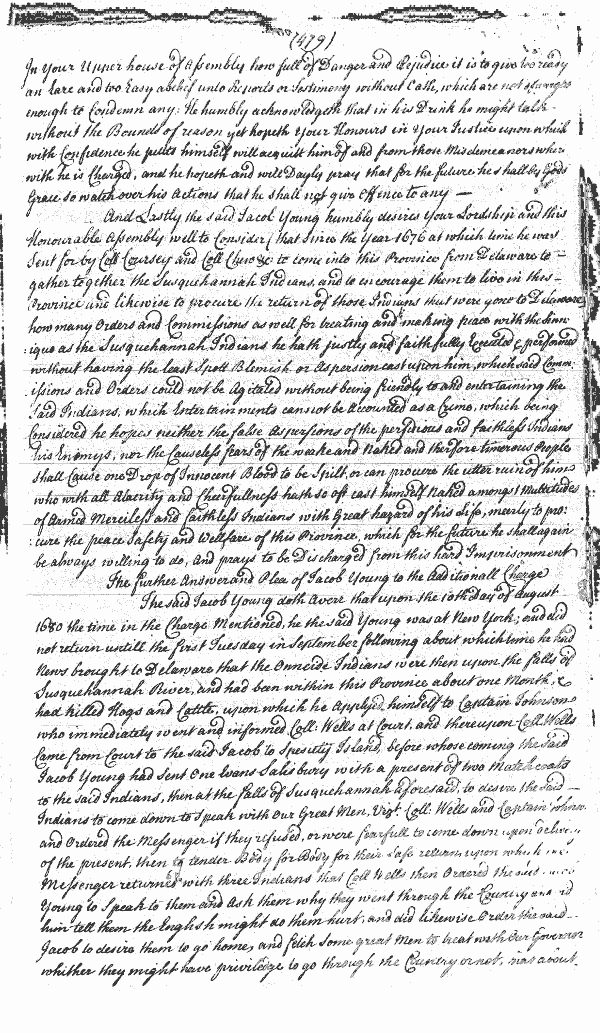 (479)
In Your Upper house of Assembly how full of Danger and Prejudice it is to give too ready
an Eare and too Easy a beleif unto Reports or Testimony without Oath, which are not
enough to Condemn any: He humbly acknowledgeth that in his Drink he might talk
without the Bounds of reason yet hopeth Your Honours in Your Justice upon which
with Confidence he putts himself will acquitt him of and from those Misdemeanors where
with he is Charged, and he hopeth and will Dayly pray that for the future he shall by Gods
Grace so watch over his Actions that he shall not give Offence to any —
And Lastly the said Jacob Young humbly desires Your Lordship and this
Honourable Assembly well to Consider, that since the Year 1676 at which time he was
Sent for by Coll Coursey and Coll to come into this Province from Delaware to —
gather together the Susquehannah Indians, and to encourage them to live in this —
Province and likewise to procure the return of those Indians that were gone to Delaware
how many Orders and Commissions as well for treating and making peace with the Sinn
:iquo as the Susquehannah Indians he hath justly and faithfully Executed & performed
without having the least Spott Blemish or Aspersion cast upon him, which said Comm:
:issions and Orders could not be Agitated without being friendly to and entertaining the
said Indians, which Entertainments cannot be Accounted as a Crime, which being
Considered he hopes neither the false Aspersions of the perfidious and faithless Indians
his Enemys, nor the Causeless fears of the weake and Naked and therefore timerous People
shall Cause one Drop of Innocent Blood to be Spilt, or can procure the utter ruin of him
who with all Alacrity and Cheirfullness hath so oft cast himself Naked amongst Multitudes
of Armed Merciless and faithless Indians with Great hazard of his Life, merly to pro:
:cure the peace Safety and Welfare of this Province, which for the future he shall again
be always willing to do, and prays to be Discharged from this hard Imprisonment
The further Answer and Plea of Jacob Young to the Additionall Charge
The said Jacob Young doth Averr that upon the 10th Day of August
1680 the time in the Charge Mentioned, he the said Young was at New York, and did
not return untill the first Tuesday in September following about which time he had
News brought to Delaware that the Onneide Indians were then upon the falls of
Susquehannah River, and had been within this Province about one Month, &
had killed Hogs and Cattle, upon which he Applyed himself to Captain Johnson
who immediately went and informed Coll: Wells at Court, and thereupon Coll Wells
Came from Court to the said Jacob to Spesuty Island, before whose coming the said
Jacob Young had sent One Evans Salisbury with a present of two Matchcoats
to the said Indians, then at the falls of Susquehannah aforesaid, to desire the said —
Indians to come down to Speak with Our Great Men, Vizt. Coll: Wells and Captain Johnson
and Ordered the Messenger if they refused, or were fearfull to come down upon
of the present, then to tender Body for Body for their safe return, upon which
Messenger returned with three Indians that Coll Wells then Ordered the
Young to Speak to them and Ask them why they went through the Country and
him tell them the English might do them hurt, and did likewise Order the said —
Jacob to desire them to go home, and fetch some great Men to treat with Our Governor
whither they might have priviledge to go through the Country or not, was about